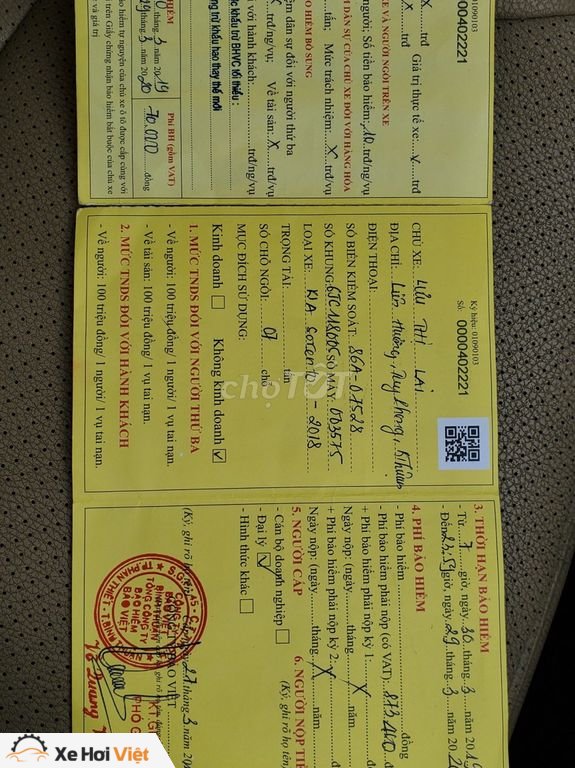 HIỂM
tháng 3 năm 2019
29 tháng 3 năm 2020
Phí BH (gồm VAT)
70.000 đồng
iểm tự nguyện của chủ xe ô tô được cấp cùng với
trên Giấy chứng nhận bảo hiểm bắt buộc của chủ xe
và giá trị
Ký hiệu: 01090103
Số: 0000402221
X trđ
Giá trị thực tế xe: X trđ
E VÀ NGƯỜI NGỒI TRÊN XE
người; Số tiền bảo hiểm: 10 trđ/ng/vụ
DÂN SỰ CỦA CHỦ XE ĐỐI VỚI HÀNG HÓA
tấn; Mức trách nhiệm: X trđ/tấn
ẢO HIỂM BỔ SUNG
iệm dân sự đối với người thứ ba
X trđ/ng/vụ; Về tài sản: X trđ/vụ
với hành khách: trđ/ng/vụ
ức khấu trừ BHVC tối thiểu:
ng trừ khấu hao thay thế mới
Ký hiệu: 01090103
Số: 0000402221
CHỦ XE: LƯU THỊ LẠI
ĐỊA CHỈ:
ĐIỆN THOẠI:
SỐ BIỂN KIỂM SOÁT: 86A-07528
SỐ KHUNG: 6JC118005 SỐ MÁY: 003575
LOẠI XE: KIA Sorento - 2018
TRỌNG TẢI: tấn
SỐ CHỖ NGỒI: 07 chỗ
MỤC ĐÍCH SỬ DỤNG:
Kinh doanh Không kinh doanh
1. MỨC TNDS ĐỐI VỚI NGƯỜI THỨ BA
- Về người: 100 triệu đồng/ 1 người/ 1 vụ tai nạn.
- Về tài sản: 100 triệu đồng/ 1 vụ tai nạn.
2. MỨC TNDS ĐỐI VỚI HÀNH KHÁCH
- Về người: 100 triệu đồng/ 1 người/ 1 vụ tai nạn.
3. THỜI HẠN BẢO HIỂM
- Từ: 7 giờ, ngày 30 tháng 3 năm 2019
- Đến: 23.59 giờ, ngày 29 tháng 3 năm 202
4. PHÍ BẢO HIỂM
- Phí bảo hiểm đồng
- Phí bảo hiểm phải nộp (có VAT): 873.400
+ Phí bảo hiểm phải nộp kỳ 1:
Ngày nộp: (ngày tháng X năm
+ Phí bảo hiểm phải nộp kỳ 2: X
Ngày nộp: (ngày tháng X năm
5. NGƯỜI CẤP
- Cán bộ doanh nghiệp
- Đại lý
- Hình thức khác
6. NGƯỜI NỘP TIỀ
(Ký, ghi rõ họ tên,
(Ký, ghi rõ họ
27 tháng 3 năm 20
BẢO VIỆT
TỔNG CÔNG TY
BẢO HIỂM
BẢO VIỆT
chợTỐT
Xe Hơi Việt